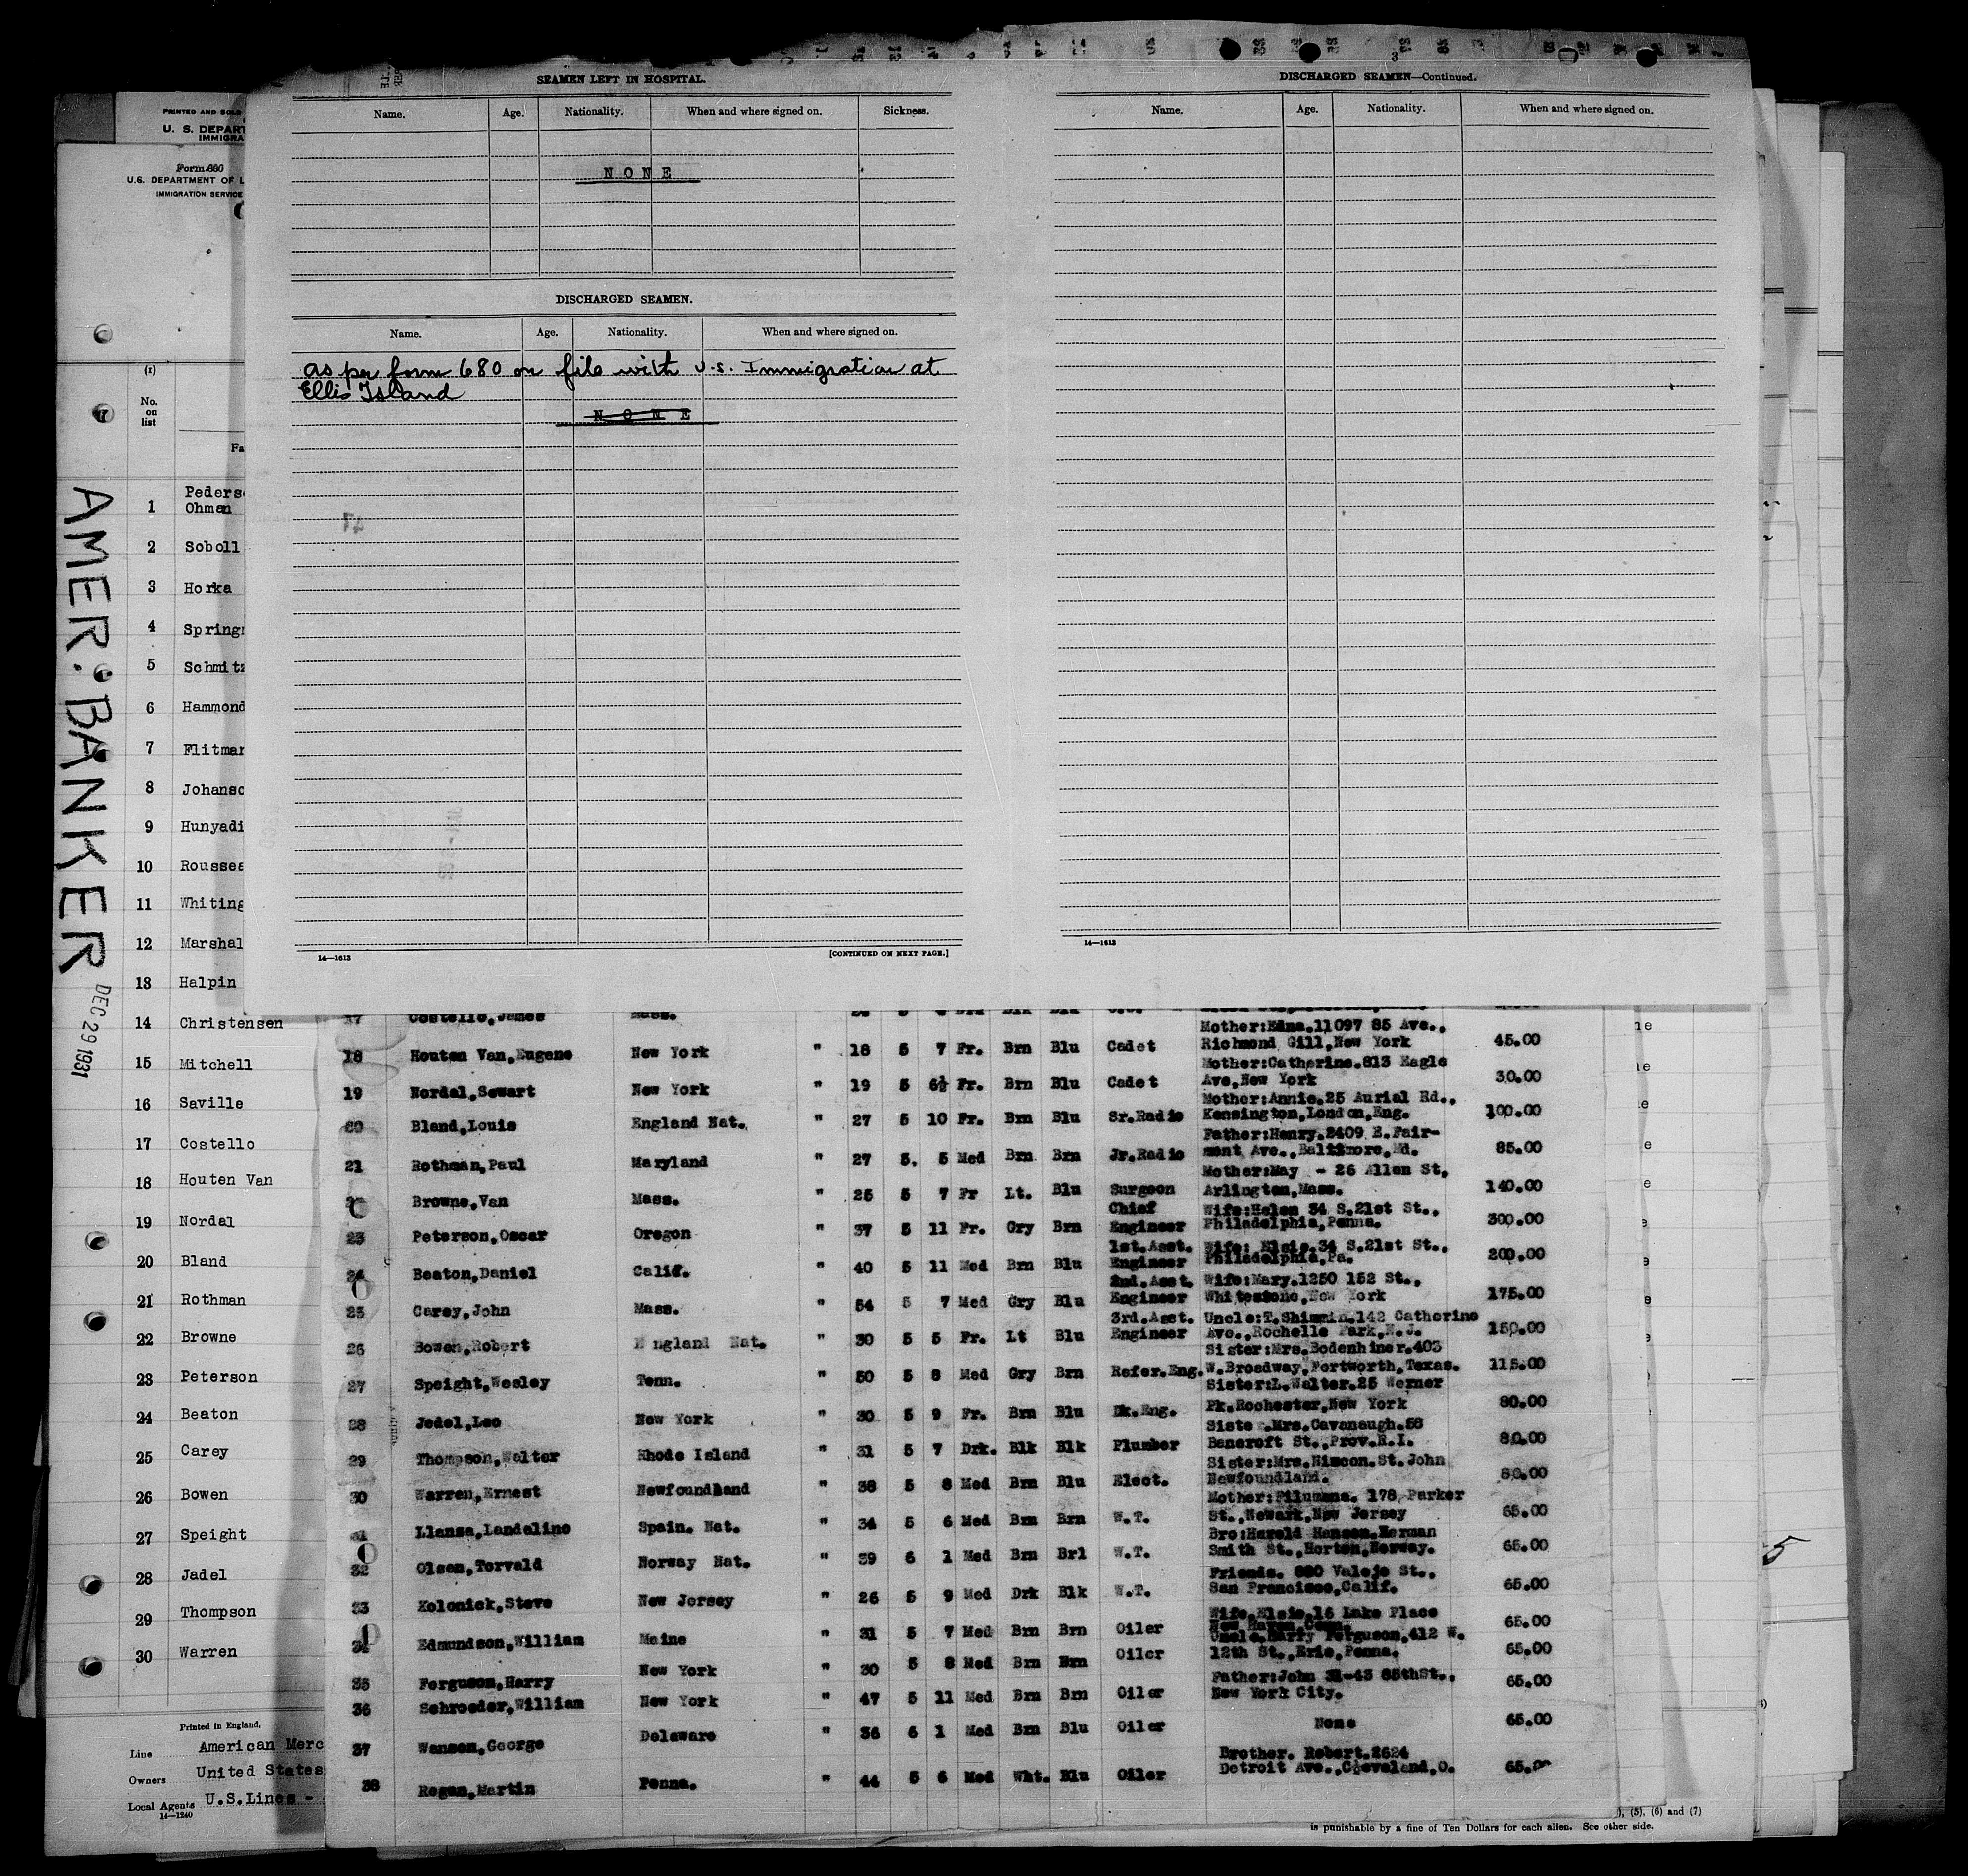 3
SEAMEN LEFT IN HOSPITAL.
Name. Age. Nationality. When and where signed on. Sickness.
NONE
DISCHARGED SEAMEN.
Name. Age. Nationality. When and where signed on.
as per form 680 on file with U.S. Immigration at
Ellis Island
NONE
14—1613
[CONTINUED ON NEXT PAGE.]
DISCHARGED SEAMEN—Continued.
Name. Age. Nationality. When and where signed on.
14—1613
PRINTED AND SOLD
U. S. DEPART
IMMIGRA
Form 680
U.S. DEPARTMENT OF L
IMMIGRATION SERVICE
(1)
No.
on
list
Fa
AMER. BANKER
DEC 29 1931
Peders
1 Ohman
2 Soboll
3 Horka
4 Spring
5 Schmitz
6 Hammond
7 Flitman
8 Johanso
9 Hunyadi
10 Roussea
11 Whiting
12 Marshal
13 Halpin
14 Christensen
15 Mitchell
16 Saville
17 Costello
18 Houten Van
19 Nordal
20 Bland
21 Rothman
22 Browne
23 Peterson
24 Beaton
25 Carey
26 Bowen
27 Speight
28 Jadel
29 Thompson
30 Warren
Printed in England.
Line American Merc
Owners United States
Local Agents U.S.Lines -
14—1240
17 Costello,James Mass.
Mother:Edna.11097 85 Ave.,
18 Houten Van,Eugene New York " 18 5 7 Fr. Brn Blu Cadet Richmond Gill,New York 45.00
Mother:Catherine.813 Eagle
19 Nordal,Sewart New York " 19 5 6½ Fr. Brn Blu Cadet Ave,New York 30.00
Mother:Annie.25 Aurial Rd.,
20 Bland,Louis England Nat. " 27 5 10 Fr. Brn Blu Sr.Radio Kensington,London,Eng. 100.00
Father:Henry.2409 E.Fair-
21 Rothman,Paul Maryland " 27 5. 5 Med Brn Brn Jr.Radio mont Ave.,Baltimore,Md. 85.00
Mother:May - 26 Allen St,
Browne,Van Mass. " 25 5 7 Fr Lt. Blu Surgeon Arlington,Mass. 140.00
Chief Wife:Helen 34 S.21st St.,
23 Peterson,Oscar Oregon " 37 5 11 Fr. Gry Brn Engineer Philadelphia,Penna. 300.00
1st.Asst. Wife: Elsie.34 S.21st St.,
24 Beaton,Daniel Calif. " 40 5 11 Med Brn Blu Engineer Philadelphia,Pa. 200.00
2nd.Asst. Wife:Mary.1250 152 St.,
25 Carey,John Mass. " 54 5 7 Med Gry Blu Engineer Whitestone,New York 175.00
3rd.Asst. Uncle:T.Shimmin.142 Catherine
26 Bowen,Robert England Nat. " 30 5 5 Fr. Lt Blu Engineer Ave.,Rochelle Park,N.J. 150.00
Sister:Mrs.Bodenhiner.403
27 Speight,Wesley Tenn. " 50 5 8 Med Gry Brn Refer.Eng. W.Broadway,Fortworth,Texas. 115.00
Sister:L.Walter.25 Werner
28 Jedel,Leo New York " 30 5 9 Fr. Brn Blu Dk.Eng. Pk.Rochester,New York 80.00
Siste .Mrs.Cavanaugh.58
29 Thompson,Walter Rhode Island " 31 5 7 Drk. Blk Blk Plumber Bancroft St.,Prov.R.I. 80.00
Sister:Mrs.Nimcon.St.John
30 Warren,Ernest Newfoundland " 38 5 8 Med Brn Blu Elect. Newfoundland. 80.00
Mother:Filumena. 178 Parker
31 Llansa,Landelino Spain. Nat. " 34 5 6 Med Brn Brn W.T. St.,Newark,New Jersey 65.00
Bro:Harold Hansen.Herman
32 Olsen,Torvald Norway Nat. " 39 6 1 Med Brn Brl W.T. Smith St.,Horten,Norway. 65.00
Friends. 880 Valejo St.,
33 Kolonick,Steve New Jersey " 26 5 9 Med Drk Blk W.T. San Francisco,Calif. 65.00
Wife.Elsie.16 Lake Place
New Haven,Conn.
34 Edmundson,William Maine " 31 5 7 Med Brn Brn Oiler 65.00
Uncle.Harry Ferguson.412 W.
35 Ferguson,Harry New York " 30 5 8 Med Brn Brn Oiler 12th St.,Erie,Penna. 65.00
Father:John 31-43 85thSt.,
36 Schroeder,William New York " 47 5 11 Med Brn Brn Oiler New York City. 65.00
37 Wansen,George Delaware " 36 6 1 Med Brn Blu Oiler None 65.00
Brother. Robert.2624
38 Regan,Martin Penna. " 44 5 6 Med Wht. Blu Oiler Detroit Ave.,Cleveland,O. 65.00
5
), (5), (6) and (7)
is punishable by a fine of Ten Dollars for each alien. See other side.